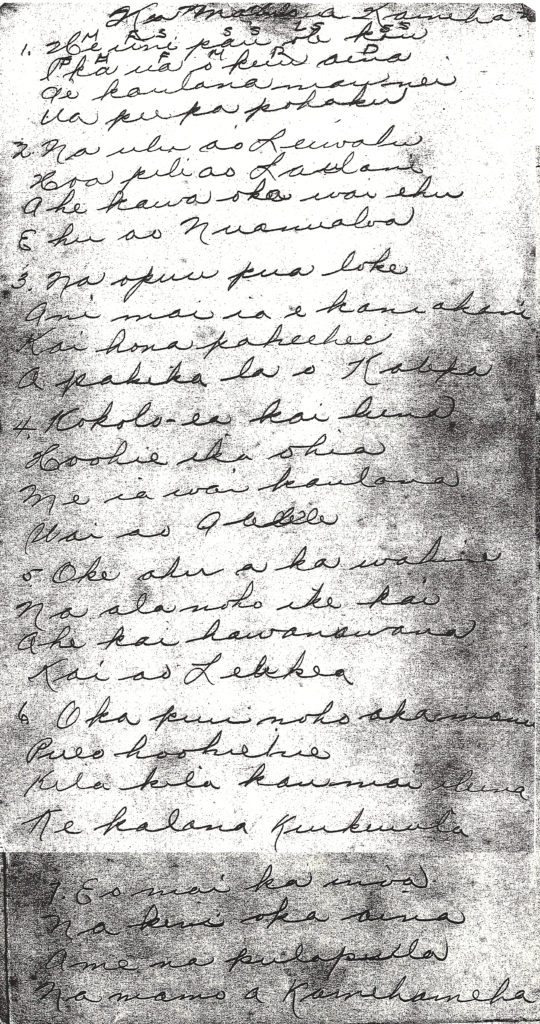 Na Mamo a Kameha
M F S S S LS SS
1. He inu pau ole keia
P M F M R D
I ka ua o keia aina
Ae kaulana mau nei
Ua pupu pohaku
2. Na uhi ao Leiwalu
Hoa pili ao Laulani
Ahe kawa oka wai ehu
E hu ao Nuanualoa
3. Na opuu pua loke
Ani mai ia e kani ahani
Kai hona paheehee
A pakika la o Kalipa
4. Kokolo-ea kai luna
Hoohie ika ohia
Me ia wai kaulana
Wai ao Alelele
5 Oke ahu a ka wahine
Na ala noho ike kai
Ahe kai hawanawana
Kai ao Lelekea
6 Oka puu noho aka manu
Pueo hookiekie
Kilakila kau mai iluna
Ke kalana Kuukuula
7. Eo mai ka inoa
Na kini oka aina
Ame na pulapula
Na mamo a Kamehameha